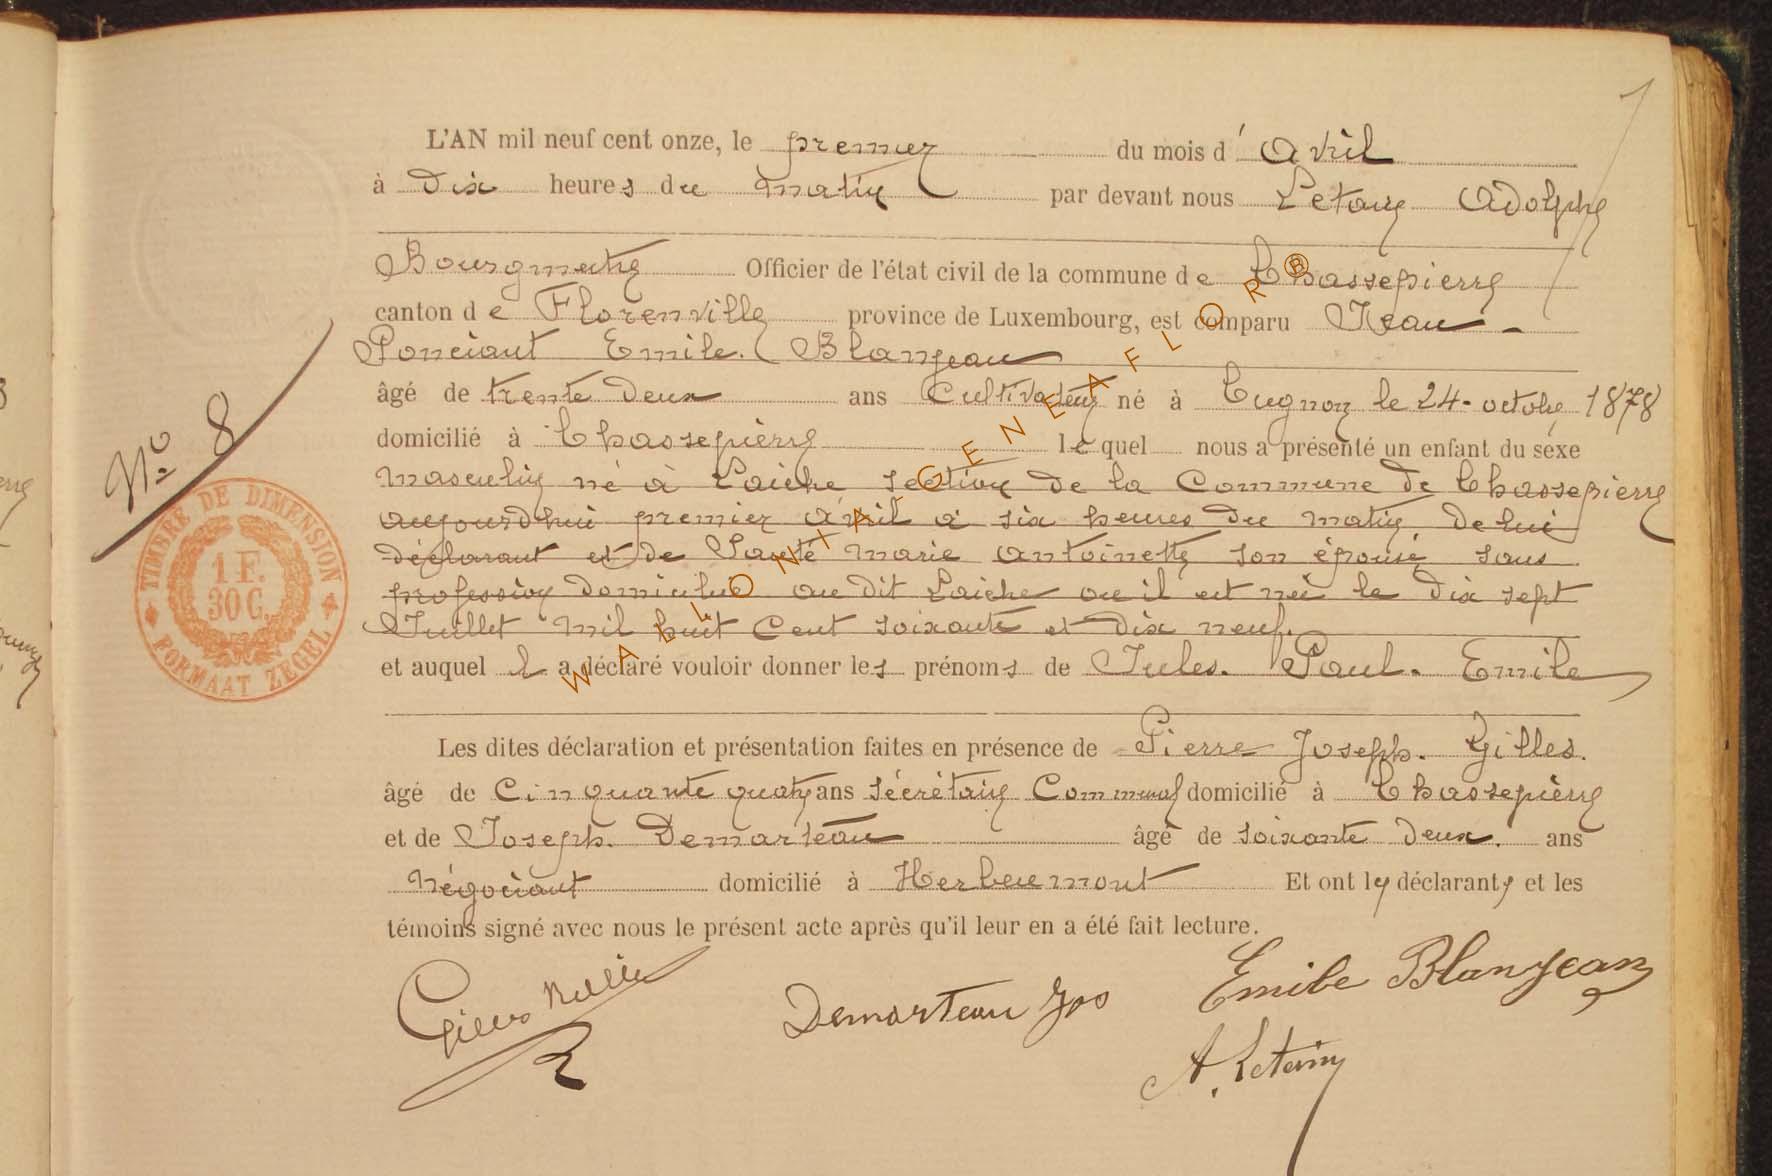 L'AN mil neuf cent onze, le premier du mois d' Avril
à Dix heures du matin par devant nous Letang Adolphe
Bourgmestre Officier de l'état civil de la commune de Chassepierre
canton de Florenville province de Luxembourg, est comparu Jean-
Ponciant Emile. Blanjean
âgé de trente Deux ans Cultivateur né à Cugnon le 24 - octobre 1878
domicilié à Chassepierre lequel nous a présenté un enfant du sexe
masculin né à Laiche section de la Commune de Chassepierre
aujourd'hui premier avril à six heures du matin de lui
déclarant et de Marie Antoinette son épouse sans
profession domiciliée au dit Laiche ou il est né le dix sept
Juillet mil huit Cent soixante et Dix neuf.
et auquel il a déclaré vouloir donner les prénoms de Jules. Paul. Emile
Les dites déclaration et présentation faites en présence de Pierre Joseph. Gilles.
âgé de Cinquante quatre ans sécrétaire Communal domicilié à Chassepierre
et de Joseph. Demarteau âgé de soixante deux. ans
Négociant domicilié à Herbeumont Et ont les déclarants et les
témoins signé avec nous le présent acte après qu'il leur en a été fait lecture.
Demarteau Jos Emile Blanjean
N° 8
TIMBRE DE DIMENSION
1 F.
30 C.
FORMAAT ZEGEL
WALLONIA-GENEAFLOR®